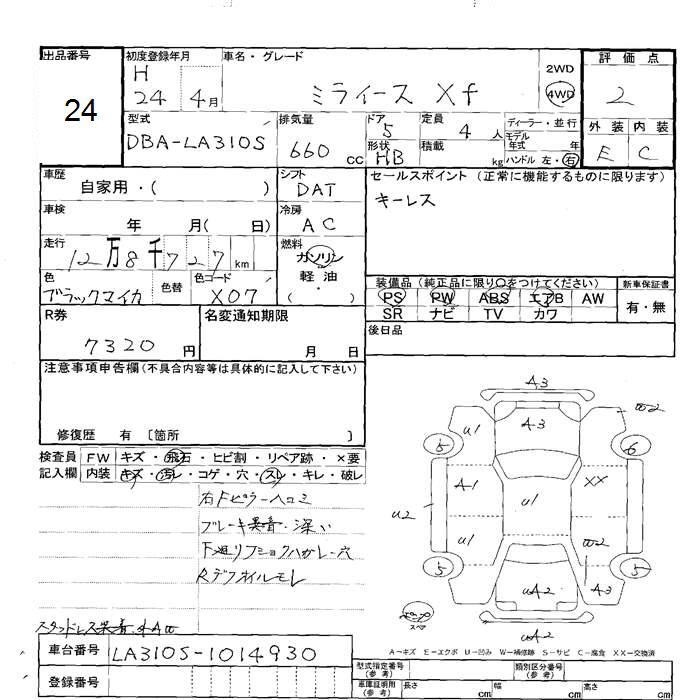 出品番号
24
初度登録年月
H 24 4月
車名・グレード
ミライース Xf
2WD
4WD
評価点
2
外装 内装
E C
型式
DBA-LA310S
排気量
660 cc
ドア 5
形状 HB
定員 4 人
積載 kg
ディーラー・並行
モデル年式 年
ハンドル 左・右
車歴
自家用・( )
シフト
DAT
セールスポイント (正常に機能するものに限ります)
キーレス
車検
年 月( 日)
冷房
AC
走行
12万8千727km
燃料
ガソリン
軽油
( ・ )
色
ブラックマイカ
色替
色コード
X07
装備品 (純正品に限り○をつけてください)
新車保証書
PS PW ABS エアB AW
SR ナビ TV カワ
有・無
R券
7320円
名変通知期限
月 日
後日品
注意事項申告欄(不具合内容等は具体的に記入して下さい)
修復歴 有 〔箇所 〕
検査員
記入欄
FW キズ・飛石・ヒビ割・リペア跡・×要
内装 キズ・汚レ・コゲ・穴・スレ・キレ・破レ
右Fピラーヘコミ
ブレーキ
Rデフオイルモレ
A3
W2
U1
A3
5
6
A1
XX
U2
U1
U1
W2
5
5
UA2
A3
スペア
UA2
A-キズ E-エクボ U-凹み W-補修跡 S-サビ C-腐食 XX-交換済
車台番号
LA310S-1014930
登録番号
型式指定番号
(参考)
類別区分番号
(参考)
車庫証明用
(参考)
長さ cm
幅 cm
高さ cm